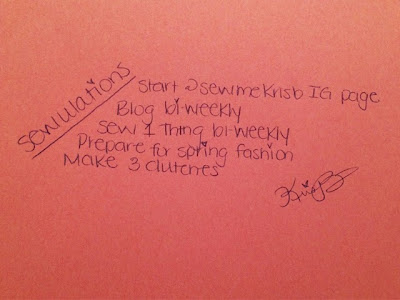 Start @sewmekrisb IG page
Blog bi-weekly
Sew 1 thing bi-weekly
Prepare for spring fashion
Make 3 clutches